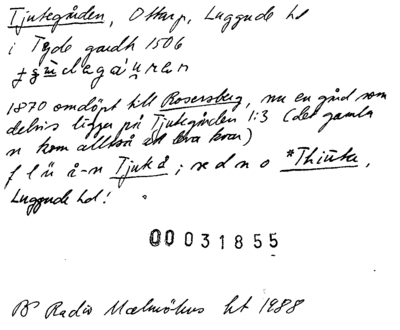 Tjutegården, Ottarp, Luggude hd
i Tyde gardh 1506
1870 omdöpt till Rosersberg, nu en gård som
delvis ligger på Tjutegården 1:3 (det gamla
n kom alltså att leva kvar)
f l ü å-n Tjutå ; se d n o *Thiuta,
Luggude hd!
00031855
Radio Malmöhus ht 1988